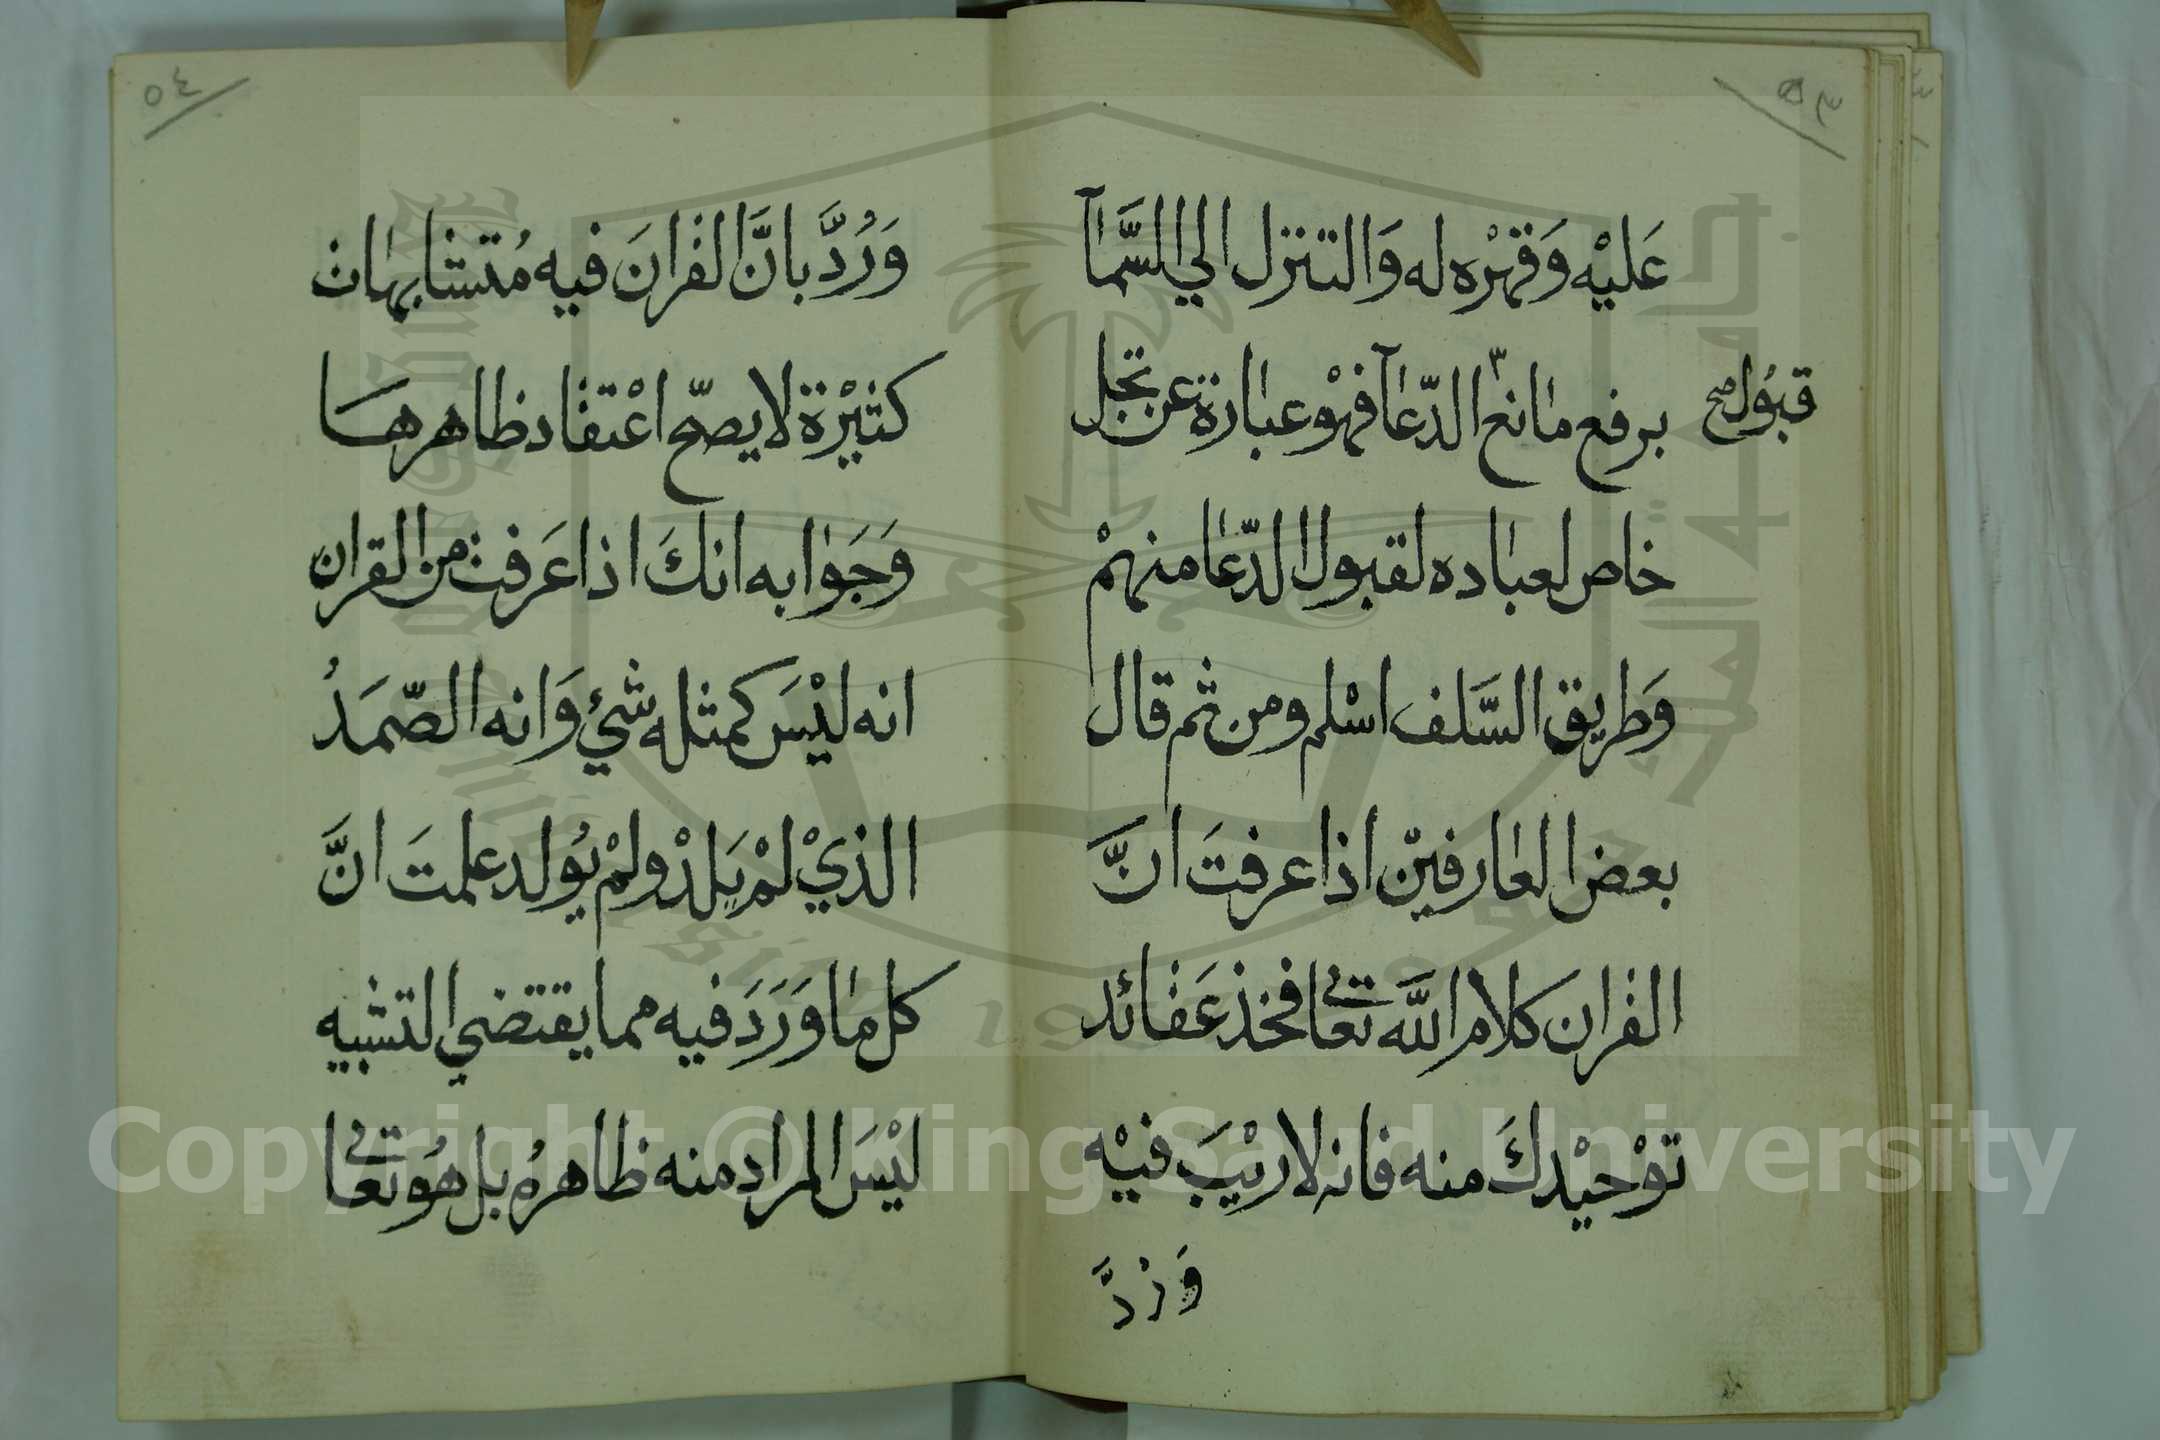 ٥٣
عَليْه وَقهْره له وَالتنزل الي السَّمآ
برفع مانع الدّعآ فهْو عبارة عن تجل
قبُول صح
خاص لعباده لقبول الدّعا منهمْ
وَطريق السَّلف اسْلم ومن ثم قال
بعض العارفيْن اذا عرفتَ انَّ
القران كلام اللَّه تعالى فخذ عَقائد
توْحيْدكَ منه فانه لا ريْبَ فيْه
وَرُدَّ
٥٤
وَرُدَّ بانَّ القرانَ فيه مُتشابهات
كثيْرة لا يصحّ اعْتقاد ظاهرها
وَجَوابه انكَ اذا عَرفت من القران
انه ليْسَ كمثله شيْء وَانه الصّمَدُ
الذيْ لمْ يَلدْ ولمْ يُولد علمتَ انَّ
كل ما وَرَدَ فيه مما يقتضي التشبيه
ليْسَ المراد منه ظاهرهُ بل هُو تعالى
جامعة الملك سعود
King Saud University
1957
Copyright © King Saud University